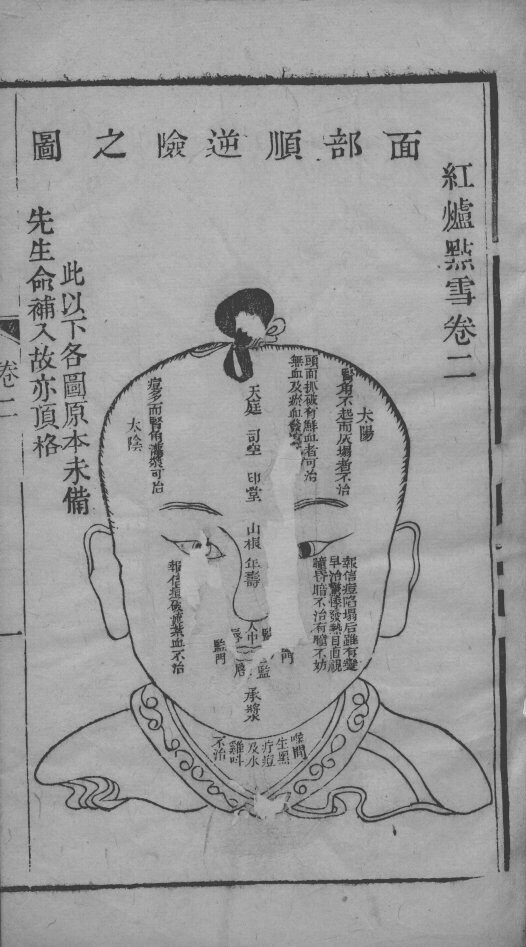 紅爐點雪卷二
面部順逆險之圖
此以下各圖原本未備
先生命補入故亦頂格
卷二
一
太陽
腎角不起而灰塌者不治
頭面抓破有鮮血者可治
無血及瘀血
天庭 司空 印堂 山根 年壽
人中
承漿
痘多而腎角灌漿可治
太陰
報信痘陷塌后雖有變
早治驚悸發熱目直視
瞳昏暗不治有瞻不妨
報信痘破流紫血不治
監門
門
監
喉間
生黑
疔痘
及水
雞叫
不治